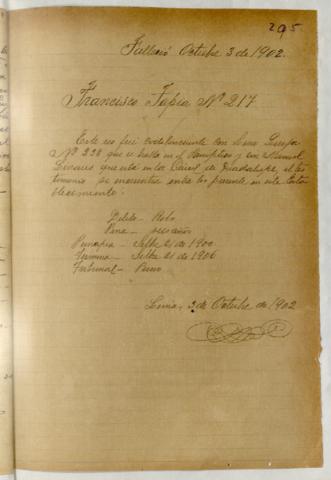 295
Falleció Octubre 3 de 1902.
Francisco Tapia Nº 217
Este reo fué codelincuente con
Nº 228 que se halla en el Panóptico y con Manuel
Linares que está en la Cárcel de Guadalupe, el tes
timonio se encuentra entre los  en este Esta
blecimiento.
Delito - Robo
Pena - seis años
Principia - Setbre 21 de 1900
Termina - Setbre 21 de 1906
Tribunal - Puno
Lima, 3 de Octubre de 1902